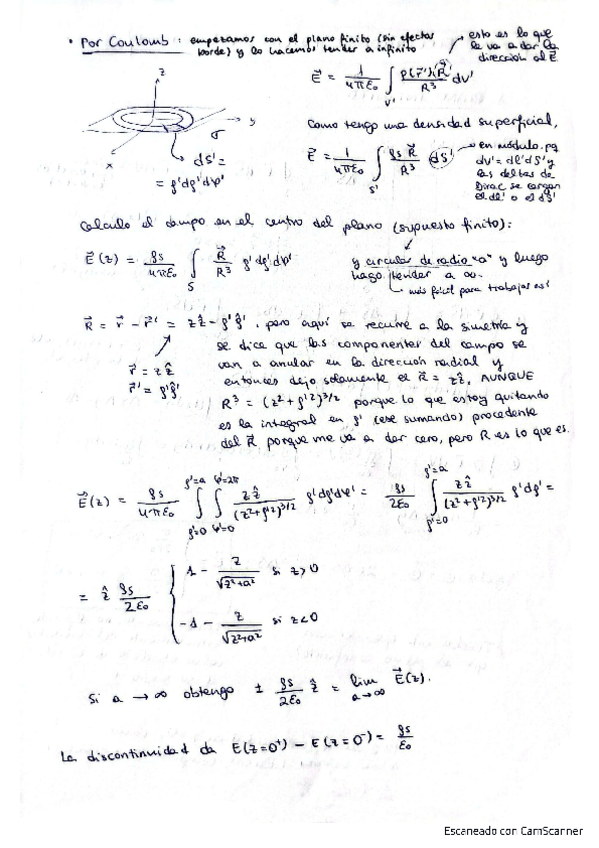 • Por Coulomb: empezamos con el plano finito (sin efectos
borde) y lo hacemos tender a infinito
→ esto es lo que
le va a dar la
dirección al E⃗
E⃗ = 1/(4πε₀) ∫_{V'} ρ(r⃗')·R⃗/R³ dV'
z
y
x
σ
dS' =
= ρ'dρ'dφ'
Como tengo una densidad superficial,
E⃗ = 1/(4πε₀) ∫_{S'} ρs R⃗/R³ dS'
→ en módulo. pq
dV' = dl'dS' y
las deltas de
Dirac se cargan
el dl' o el dS'
Calculo el campo en el centro del plano (supuesto finito):
E⃗(z) = ρs/(4πε₀) ∫_S R⃗/R³ ρ'dρ'dφ'
y circular de radio "a" y luego
hago tender a ∞.
→ más fácil para trabajar así
R⃗ = r⃗ - r⃗' = zẑ - ρ'ρ̂', pero aquí se recurre a la simetría y
se dice que las componentes del campo se
van a anular en la dirección radial y
r⃗ = zẑ
r⃗' = ρ'ρ̂'
entonces dejo solamente el R⃗ = zẑ, AUNQUE
R³ = (z²+ρ'²)^{3/2} porque lo que estoy quitando
es la integral en ρ' (ese sumando) procedente
del R⃗ porque me va a dar cero, pero R es lo que es.
E⃗(z) = ρs/(4πε₀) ∫_{ρ'=0}^{ρ'=a} ∫_{φ'=0}^{φ'=2π} zẑ/(z²+ρ'²)^{3/2} ρ'dρ'dφ' = ρs/(2ε₀) ∫_{ρ'=0}^{ρ'=a} zẑ/(z²+ρ'²)^{3/2} ρ'dρ' =
= ẑ ρs/(2ε₀) { 1 - z/√(z²+a²) si z>0
-1 - z/√(z²+a²) si z<0
Si a → ∞ obtengo ± ρs/(2ε₀) ẑ = lim_{a→∞} E⃗(z).
La discontinuidad da E(z=0⁺) - E(z=0⁻) = ρs/ε₀
Escaneado con CamScanner